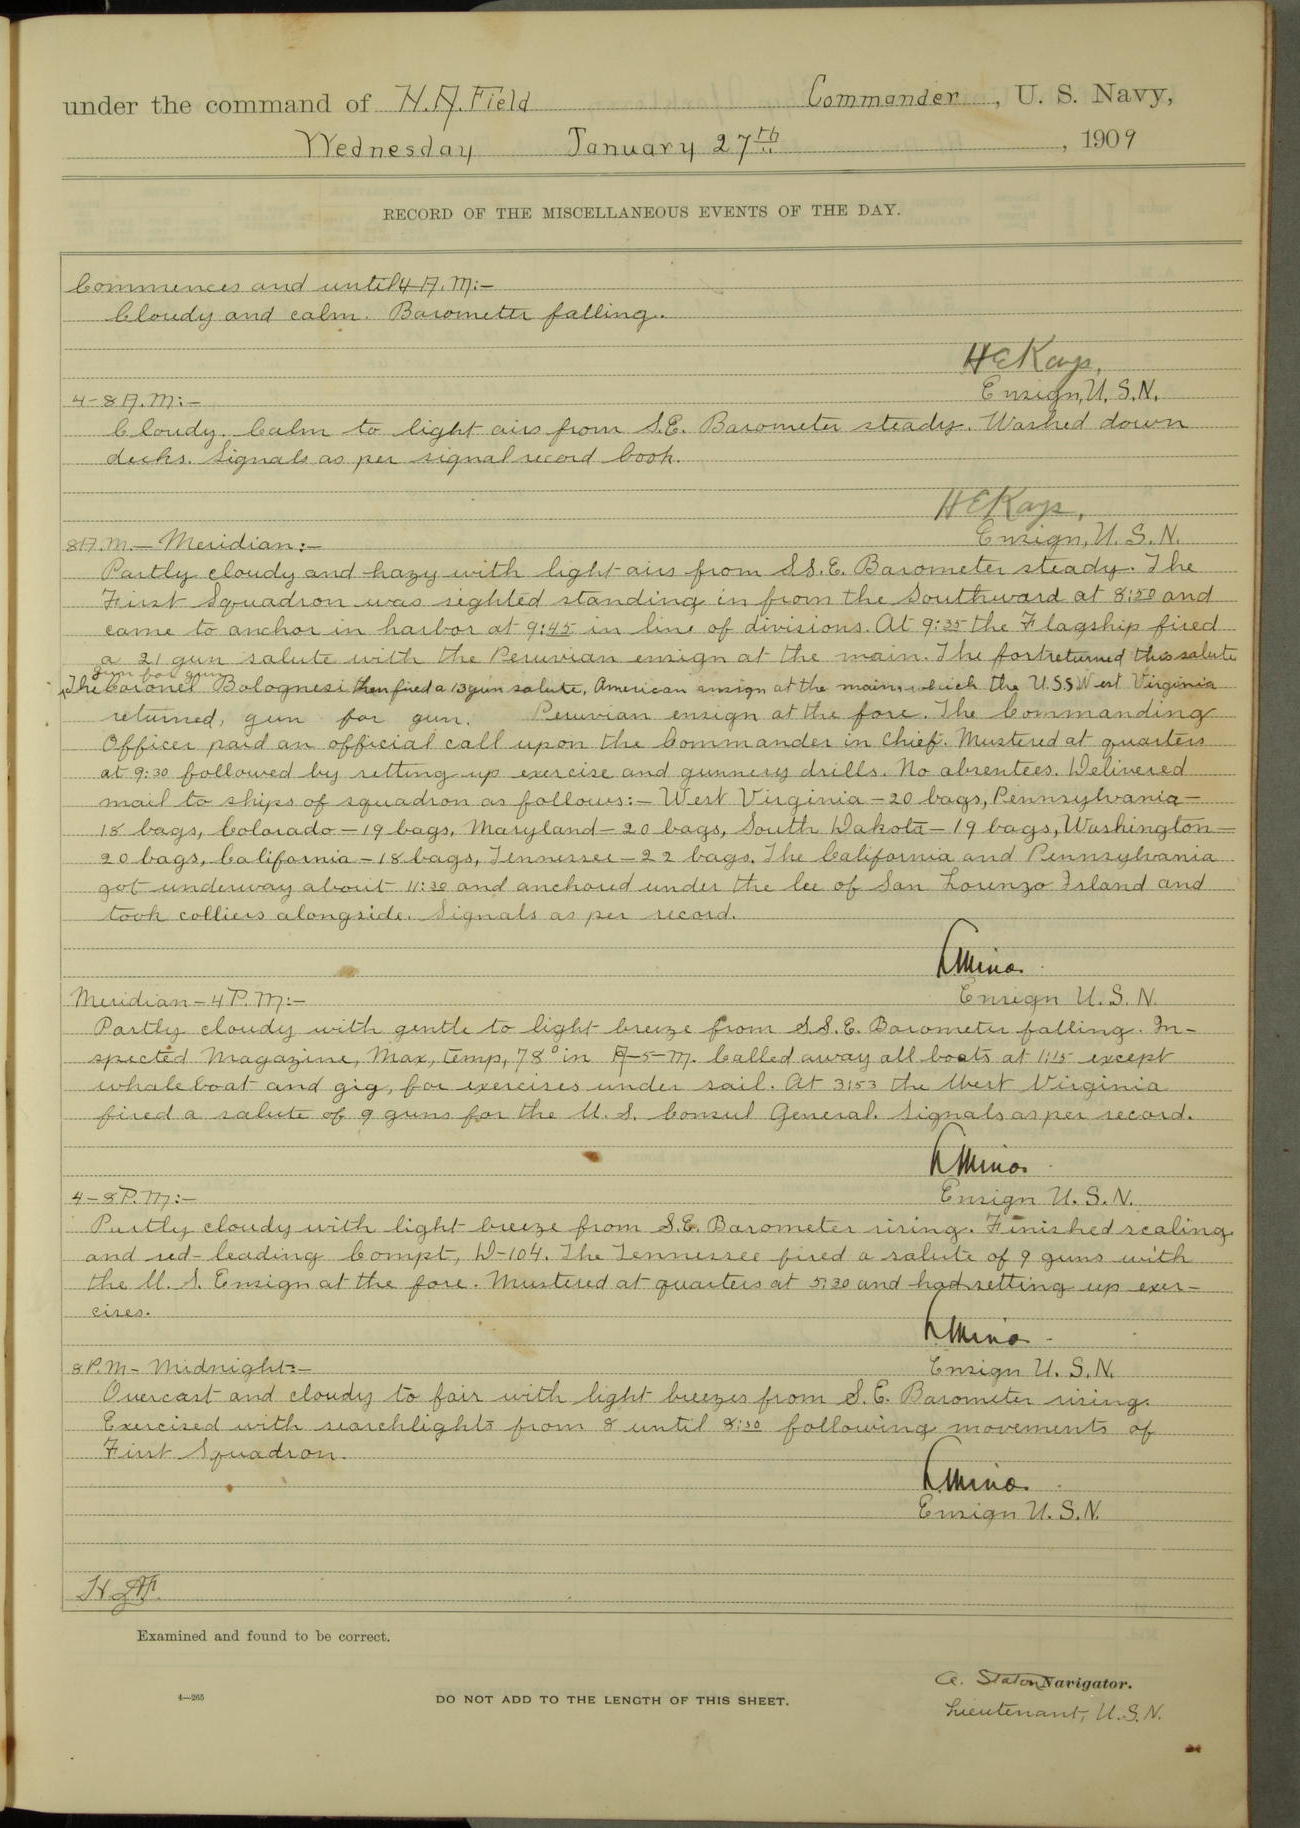 under the command of H. A. Field Commander, U. S. Navy,
Wednesday January 27th, 1909
RECORD OF THE MISCELLANEOUS EVENTS OF THE DAY.
Commences and until 4 A. M:—
Cloudy and calm. Barometer falling.
H E Kays,
Ensign, U. S. N.
4-8 A. M:—
Cloudy. Calm to light airs from S.E. Barometer steady. Washed down
decks. Signals as per signal record book.
H E Kays,
Ensign, U. S. N.
8 A. M.— Meridian:—
Partly cloudy and hazy with light airs from S.S.E. Barometer steady. The
First Squadron was sighted standing in from the Southward at 8:50 and
came to anchor in harbor at 9:45 in line of divisions. At 9:35 the Flagship fired
a 21 gun salute with the Peruvian ensign at the main. The fort returned this salute
gun for gun
The Coronel Bolognesi then fired a 13 gun salute, American ensign at the main, which the U.S.S West Virginia
returned, gun for gun. Peruvian ensign at the fore. The Commanding
Officer paid an official call upon the Commander in Chief. Mustered at quarters
at 9:30 followed by setting up exercise and gunnery drills. No absentees. Delivered
mail to ships of squadron as follows:— West Virginia — 20 bags, Pennsylvania —
18 bags, Colorado — 19 bags, Maryland — 20 bags, South Dakota — 19 bags, Washington —
20 bags, California — 18 bags, Tennessee — 22 bags. The California and Pennsylvania
got underway about 11:30 and anchored under the lee of San Lorenzo Island and
took colliers alongside. Signals as per record.
Ensign U. S. N.
Meridian — 4 P. M:—
Partly cloudy with gentle to light breeze from S.S.E. Barometer falling. In-
spected Magazine, Max, temp, 78° in A-5-M. Called away all boats at 1:15 except
whaleboat and gig, for exercises under sail. At 3:53 the West Virginia
fired a salute of 9 guns for the U. S. Consul General. Signals as per record.
Ensign U. S. N.
4-8 P. M:—
Partly cloudy with light breeze from S.E. Barometer rising. Finished scaling
and red-leading Compt, D-104. The Tennessee fired a salute of 9 guns with
the U. S. Ensign at the fore. Mustered at quarters at 5:30 and had setting up exer-
cises.
Ensign U. S. N.
8 P. M - Midnight:—
Overcast and cloudy to fair with light breezes from S. E. Barometer rising.
Exercised with searchlights from 8 until 8:30 following movements of
First Squadron.
Ensign U. S. N.
H A F.
Examined and found to be correct.
A. Staton Navigator.
4—265
DO NOT ADD TO THE LENGTH OF THIS SHEET.
Lieutenant, U.S.N.